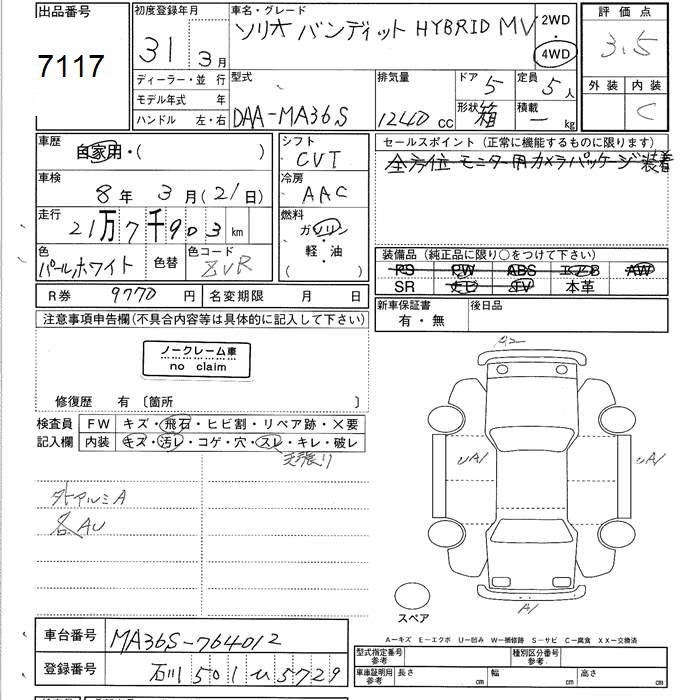 出品番号
7117
初度登録年月
31年 3月
車名・グレード
ソリオ バンディット HYBRID MV
2WD
・
4WD
評価点
3.5
ディーラー・並行
モデル年式 年
ハンドル 左・右
型式
DAA-MA36S
排気量
1240 cc
ドア 5
形状 箱
定員 5人
積載 ー kg
外装 内装
C
車歴
自家用・( )
車検
8年 3月(21日)
走行
21万7千903km
色
パールホワイト
色替
色コード
ZVR
シフト
CVT
冷房
AAC
燃料
ガソリン
・
軽・油
( )
セールスポイント(正常に機能するものに限ります)
全方位モニター用カメラパッケージ装着
装備品(純正品に限り○をつけて下さい)
PS PW ABS エアB AW
SR ナビ TV 本革
R券 9770円 名変期限 月 日
新車保証書
有・無
後日品
注意事項申告欄(不具合内容等は具体的に記入して下さい)
ノークレーム車
no claim
修復歴 有〔箇所 〕
検査員
記入欄
FW キズ・飛石・ヒビ割・リペア跡・×要
内装 キズ・汚レ・コゲ・穴・スレ・キレ・破レ
外アルミA
各AU
A2
UA1
UA1
A1
スペア
A－キズ E－エクボ U－凹み W－補修跡 S－サビ C－腐食 XX－交換済
車台番号 MA36S-764012
登録番号 石川 501 ひ 5729
型式指定番号
参考
種別区分番号
参考
車庫証明用
参考
長さ cm 幅 cm 高さ cm